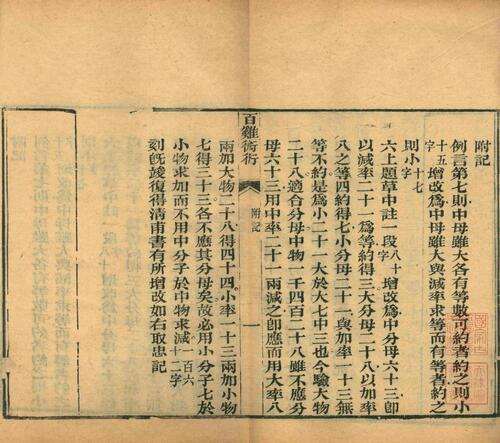 附記
例言第七則中母雖大各有等數可約者約之則小
十五字增改爲中母雖大與減率求等而有等者約之
則小十七字
六上題草中註一段八十字增改爲中分母六十三卽
以減率二十一爲等約得三大分母二十八以加率
八之等四約得七小分母二十一與加率一十三無
等不約是爲小二十一大於大七中三也今驗大物
二十八適合分母中物一千四百二十八雖不應分
母六十三用中率二十一兩減之卽應而用大率八
百雞術衍
附記
一
兩加大物二十八得四十四小率一十三兩加小物
七得三十三各不應其分母矣故必用小分子七於
小物求加而不用中分子於中物求減一百六十二字
刻旣竣復得清甫書有所增改如右取忠記